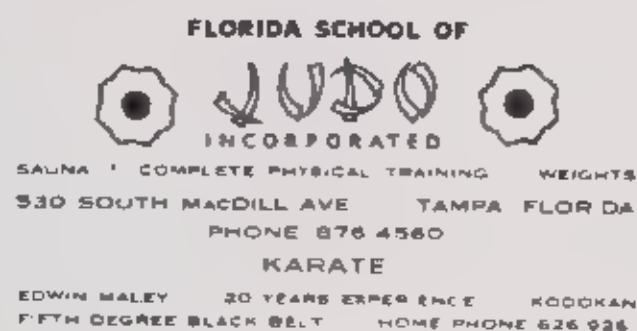 FLORIDA SCHOOL OF
JUDO
INCORPORATED
SAUNA COMPLETE PHYSICAL TRAINING WEIGHTS
930 SOUTH MACDILL AVE TAMPA FLOR DA
PHONE 876 4560
KARATE
EDWIN MALEY 20 YEARS EXPER ENCE KODOKAN
FIFTH DEGREE BLACK BELT HOME PHONE